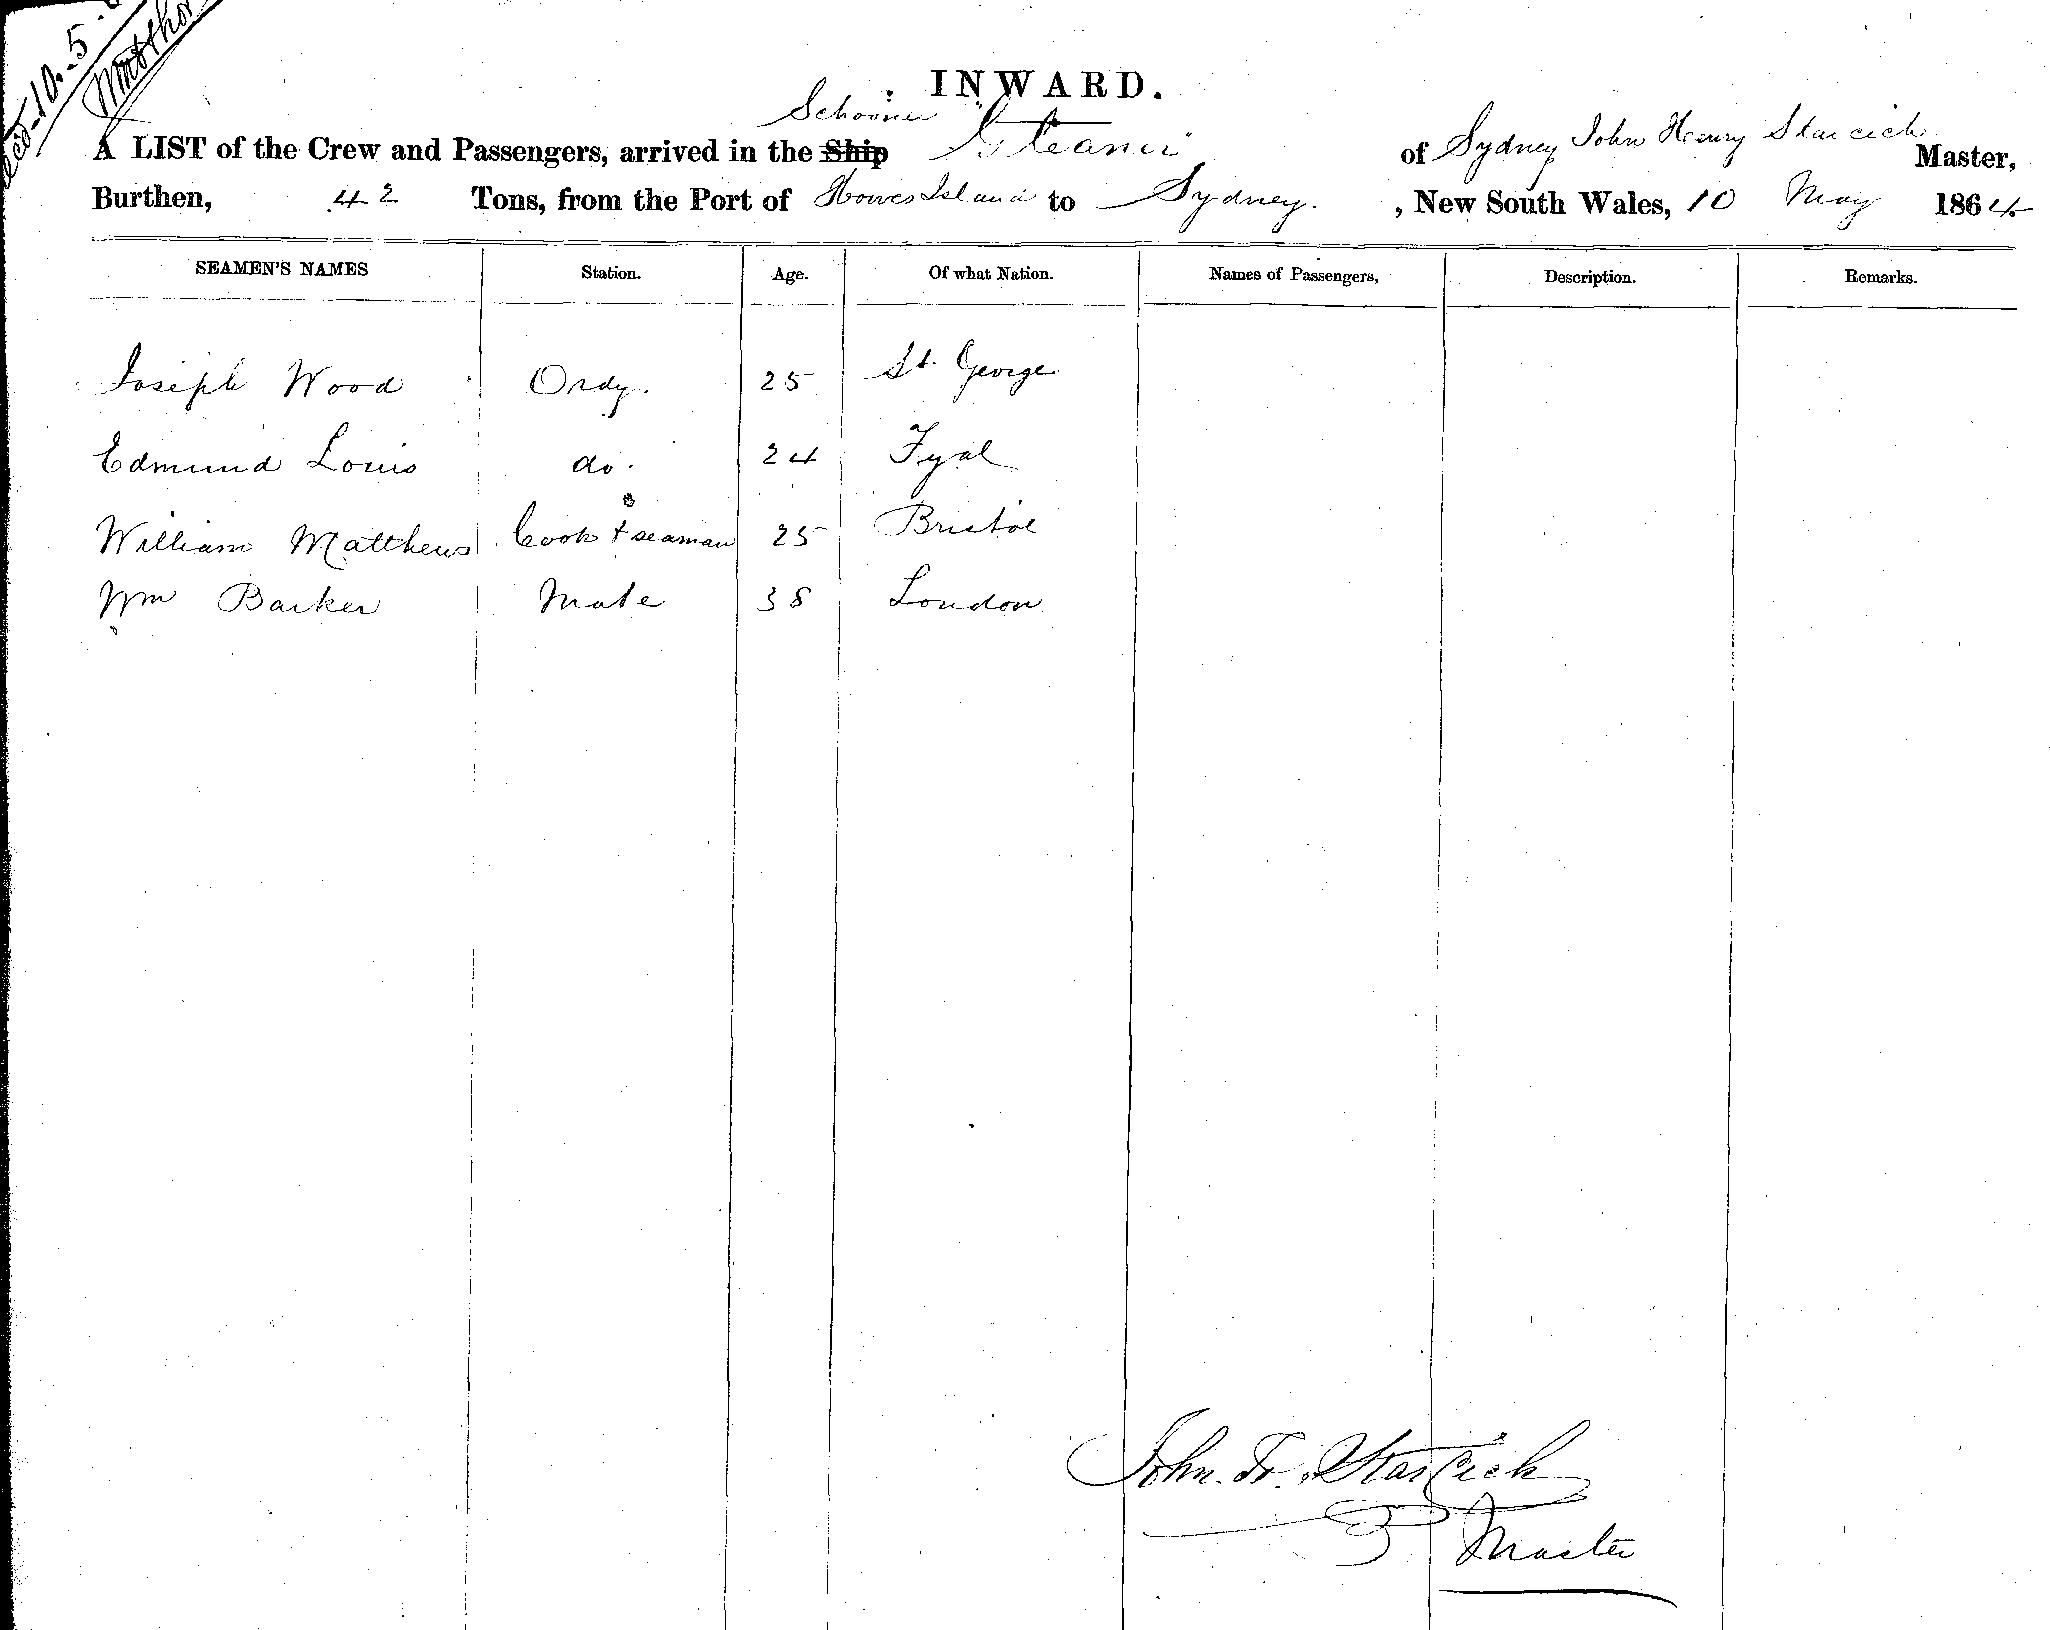 10-5
INWARD.
Schooner
A LIST of the Crew and Passengers, arrived in the Ship of Sydney John Henry Starcich Master,
Burthen, 42 Tons, from the Port of Howes Island to Sydney. , New South Wales, 10 May 1864
SEAMEN'S NAMES Station. Age. Of what Nation. Names of Passengers, Description. Remarks.
Joseph Wood Ordy. 25 St. George
Edmund Louis do. 24 Fyal
William Matthews Cook + seaman 25 Bristol
Wm Barker Mate 38 London
John H. Starcich
Master